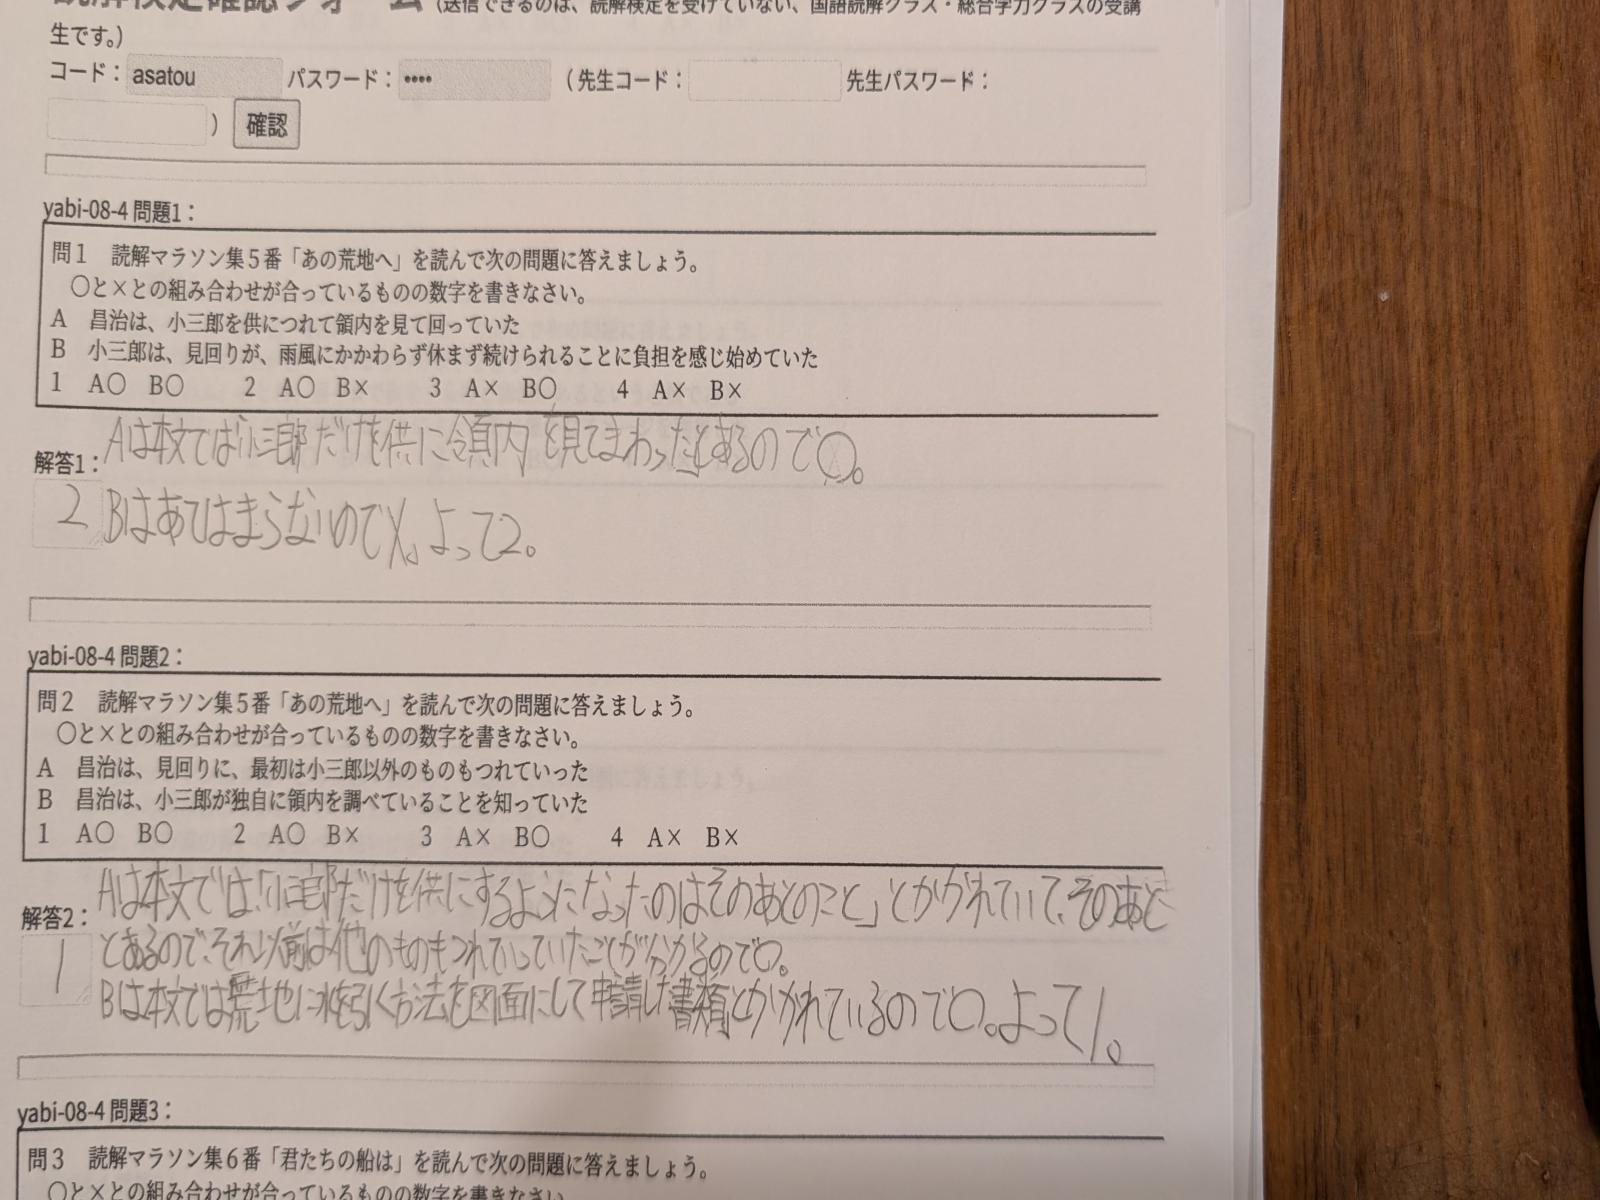 読解検定確認フォーム（送信できるのは、読解検定を受けていない、国語読解クラス・総合学力クラスの受講
生です。）
コード： asatou パスワード： •••• （先生コード： 先生パスワード：
） 確認
yabi-08-4 問題1：
問１　読解マラソン集５番「あの荒地へ」を読んで次の問題に答えましょう。
○と×との組み合わせが合っているものの数字を書きなさい。
A　昌治は、小三郎を供につれて領内を見て回っていた
B　小三郎は、見回りが、雨風にかかわらず休まず続けられることに負担を感じ始めていた
1　A○　B○　2　A○　B×　3　A×　B○　4　A×　B×
Aは本文では「小三郎だけを供に領内を見てまわった」とあるので○。
解答1：
2 Bはあてはまらないので×。よって2。
yabi-08-4 問題2：
問２　読解マラソン集５番「あの荒地へ」を読んで次の問題に答えましょう。
○と×との組み合わせが合っているものの数字を書きなさい。
A　昌治は、見回りに、最初は小三郎以外のものもつれていった
B　昌治は、小三郎が独自に領内を調べていることを知っていた
1　A○　B○　2　A○　B×　3　A×　B○　4　A×　B×
Aは本文では「小三郎だけを供にするようになったのはそのあとのこと」とかかれていて、そのあと
解答2：
とあるので、それ以前は他のものもつれていっていたことが分かるので○。
1 Bは本文では荒地に水を引く方法を図面にして申請した書類とかかれているので○。よって1。
yabi-08-4 問題3：
問３　読解マラソン集６番「君たちの船は」を読んで次の問題に答えましょう。
○と×との組み合わせが合っているものの数字を書きなさい。